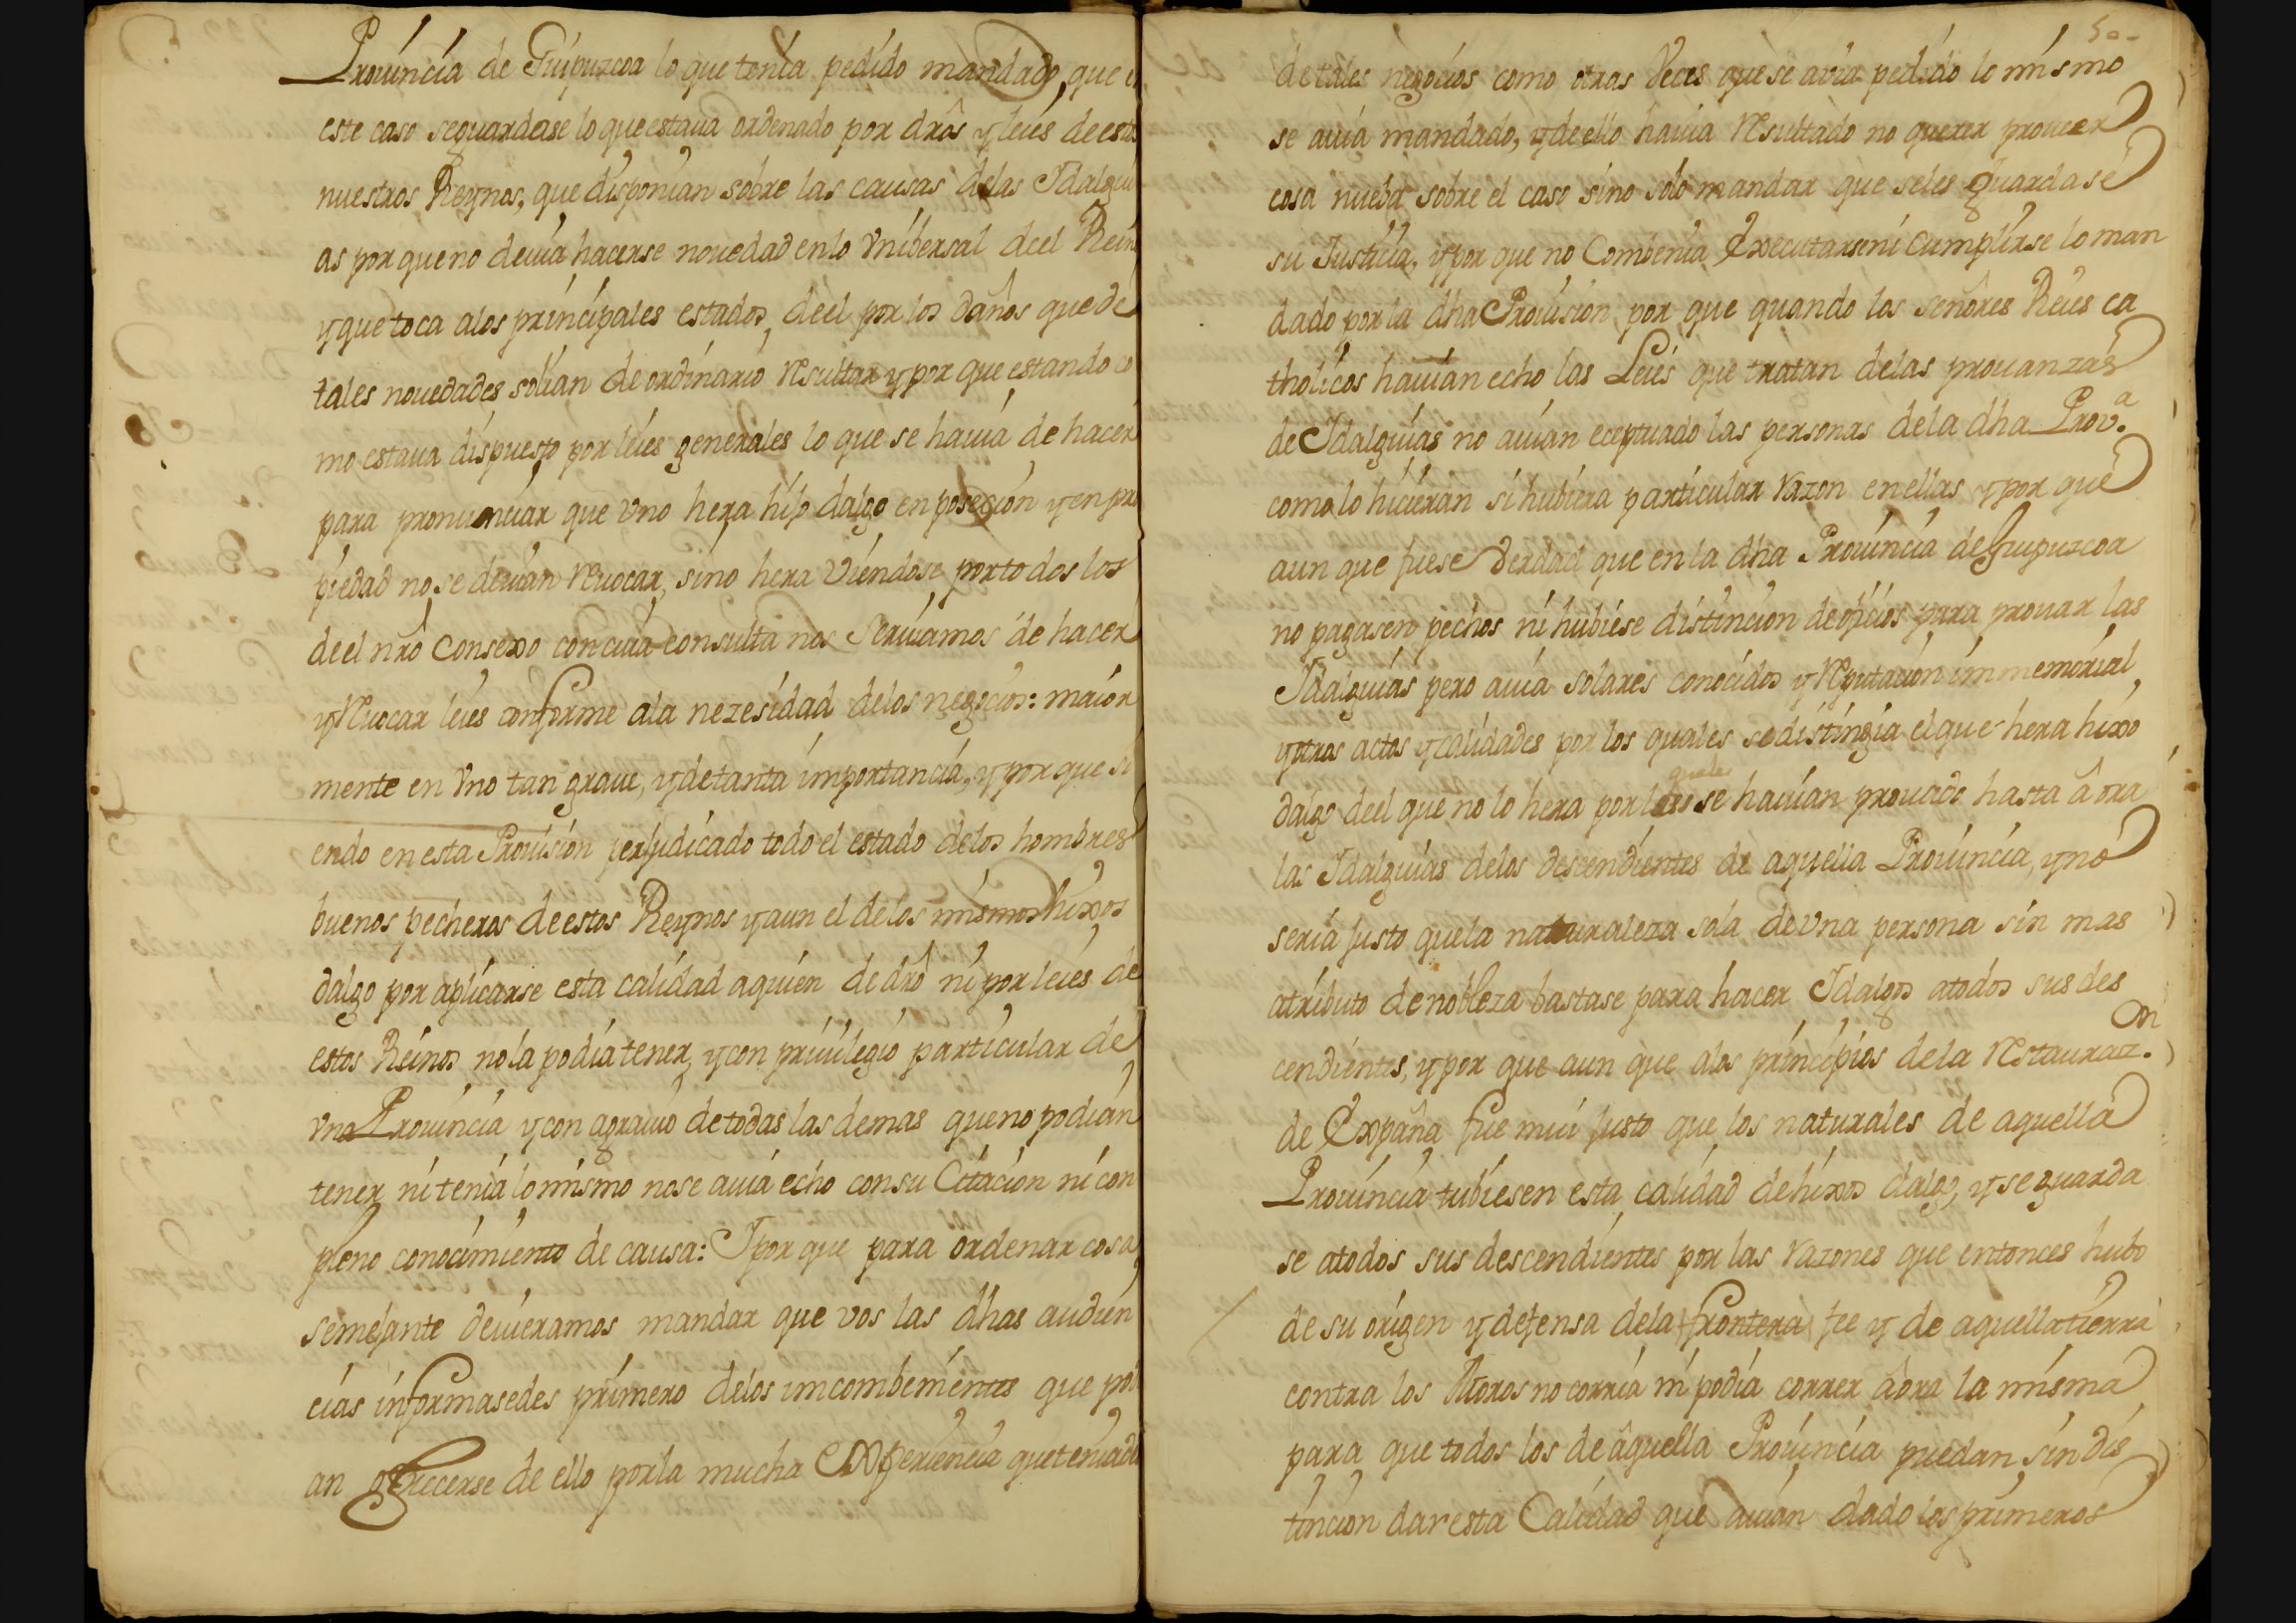 Prouincia de Guipuzcoa lo que tenia pedido mandado, que en
este caso seguardase lo que estaua ordenado por drôs y leies de estos
nuestros Reynos, que disponian sobre las causas delas Idalgui
as por que no deuia hacerse nouedad enlo vnibersal deel Rein
y que toca alos principales estados, deel por los daños que de
tales nouedades solian de ordinario resultar y por que estando co
mo estaua dispuesto por leies generales lo que se hauia de hacer
para pronunciar que vno hera hijo dalgo en posecion y en pro
piedad no se deuian reuocar, sino hera viendose por todos los
deel nrô Consexo con cuia consulta nos seruiamos de hacer
y reuocar leies conforme ala nezesidad delos negocios: maior
mente en vno tan graue, y de tanta importancia, y por que si
endo en esta Prouision perjudicado todo el estado delos hombres
buenos pecheros de estos Reynos y aun el de los mismos hixos
dalgo por aplicarse esta calidad aquien de drô ni por leies de
estos Reinos no la podia tener, y con priuilegio particular de
vna Prouincia y con agrauio de todas las demas que no podian
tener ni tenia lo mismo nose auia echo con su Citacion ni con
pleno conocimiento de causa: I por que para ordenar cosa
semejante deuieramos mandar que vos las dhas audien
cias informasedes primero delos imcombenientes que podi
an ofrecerse de ello por la mucha experiencia que teniades
500
de tales negocios como otras veces que se avia pedido lo mismo
se auia mandado, y de ello hauia resultado no querer proueer
cosa nueba sobre el caso sino solo mandar que seles guardase
su Justicia, y por que no Combenia Executarse ni cumplirse lo man
dado por la dha Prouision por que quando los señores Reies ca
tholicos hauian echo las Leies que tratan delas prouanzas
de Idalguias no auian eceptuado las personas dela dha Prov.ª
como lo hicieran si hubiera particular razon en ellas y por que
aun que fuese verdad que en la dha Prouincia de Guipuzcoa
no pagasen pechos ni hubiese distincion de oficios para prouar las
Idalguias pero auia solares conocidos y reputacion immemorial,
y otros actos y calidades por los quales se distingia el que hera hixo
dalgo deel que no lo hera por los quales se hauian prouado hasta âora
las Idalguias delos descendientes de aquella Prouincia, y no
seria justo que la naturaleza sola de vna persona sin mas
atributo de nobleza bastase para hacer Idalgos atodos sus des
cendientes, y por que aun que alos principios dela restauraz.on
de Expaña fue mui justo que los naturales de aquella
Prouincia tubiesen esta calidad de hixos dalgo, y se guarda
se atodos sus descendientes por las razones que entonces hubo
de su origen y defensa dela frontera fee y de aquella tierra
contra los Moros no corria ni podia correr âora la misma
para que todos los de âquella Prouincia puedan sin dis
tincion dar esta Calidad que auian dado los primeros